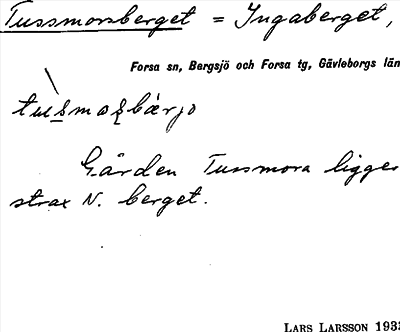 Tussmorsberget = Ingaberget,
Forsa sn, Bergsjö och Forsa tg, Gävleborgs län
Gården Tussmora ligger
strax N. berget.
LARS LARSSON 193